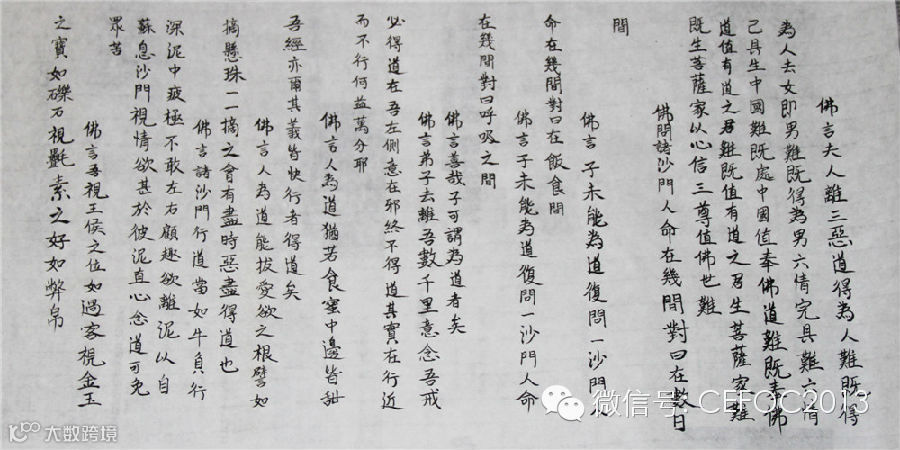 佛言夫人離三惡道得為人難既得
為人去女即男難既得為男六情完具難六情
已具生中國難既處中國值奉佛道難既奉佛
道值有道之君難既值有道之君生菩薩家難
既生菩薩家以心信三尊值佛世難
佛問諸沙門人命在幾間對曰在數日
間
佛言子未能為道復問一沙門
命在幾間對曰在飯食間
佛言子未能為道復問一沙門人命
在幾間對曰呼吸之間
佛言善哉子可謂為道者矣
佛言弟子去離吾數千里意念吾戒
必得道在吾左側意在邪終不得道其實在行近
而不行何益萬分耶
佛言人為道猶若食蜜中邊皆甜
吾經亦爾其義皆快行者得道矣
佛言人為道能拔愛欲之根譬如
摘懸珠一一摘之會有盡時惡盡得道也
佛言諸沙門行道當如牛負行
深泥中疲極不敢左右顧趣欲離泥以自
蘇息沙門視情欲甚於彼泥直心念道可免
眾苦
佛言吾視王侯之位如過客視金玉
之寶如礫石視氎素之好如弊帛
微信号: CEFOC2013
大数跨境